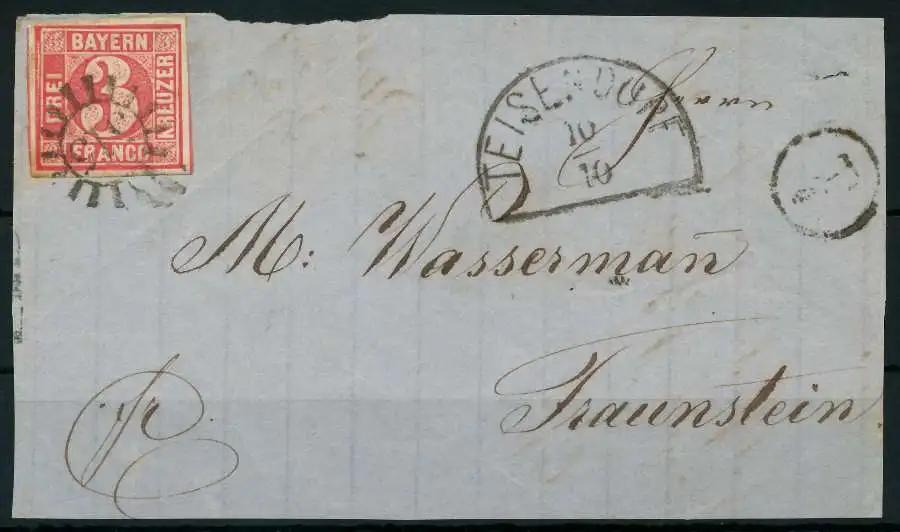 BAYERN
DREI
3
KREUZER
FRANCO
TEISENDORF
10
10
Herrn
M: Wasserman̄
Traunstein
fr.